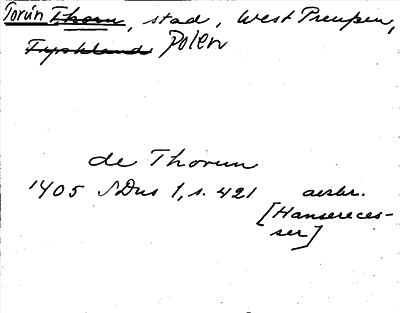 Toruń Thorn, stad, West Preußen,
Tyskland Polen
de Thorun
1405 SDns 1, s. 421 avskr.
[Hansereces-
ser]